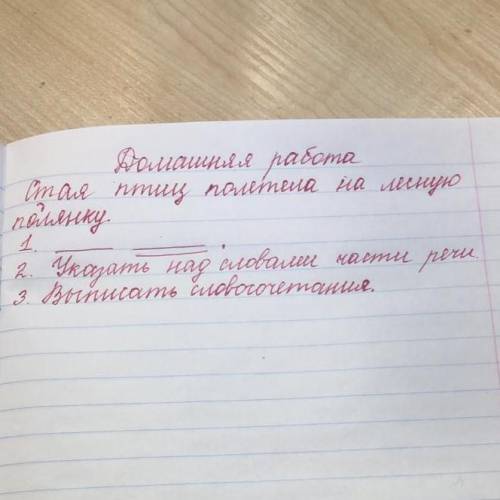 Домашняя работа
Стая птиц полетела на лесную
полянку.
1.
2. Указать над словами части речи.
3. Выписать словосочетания.